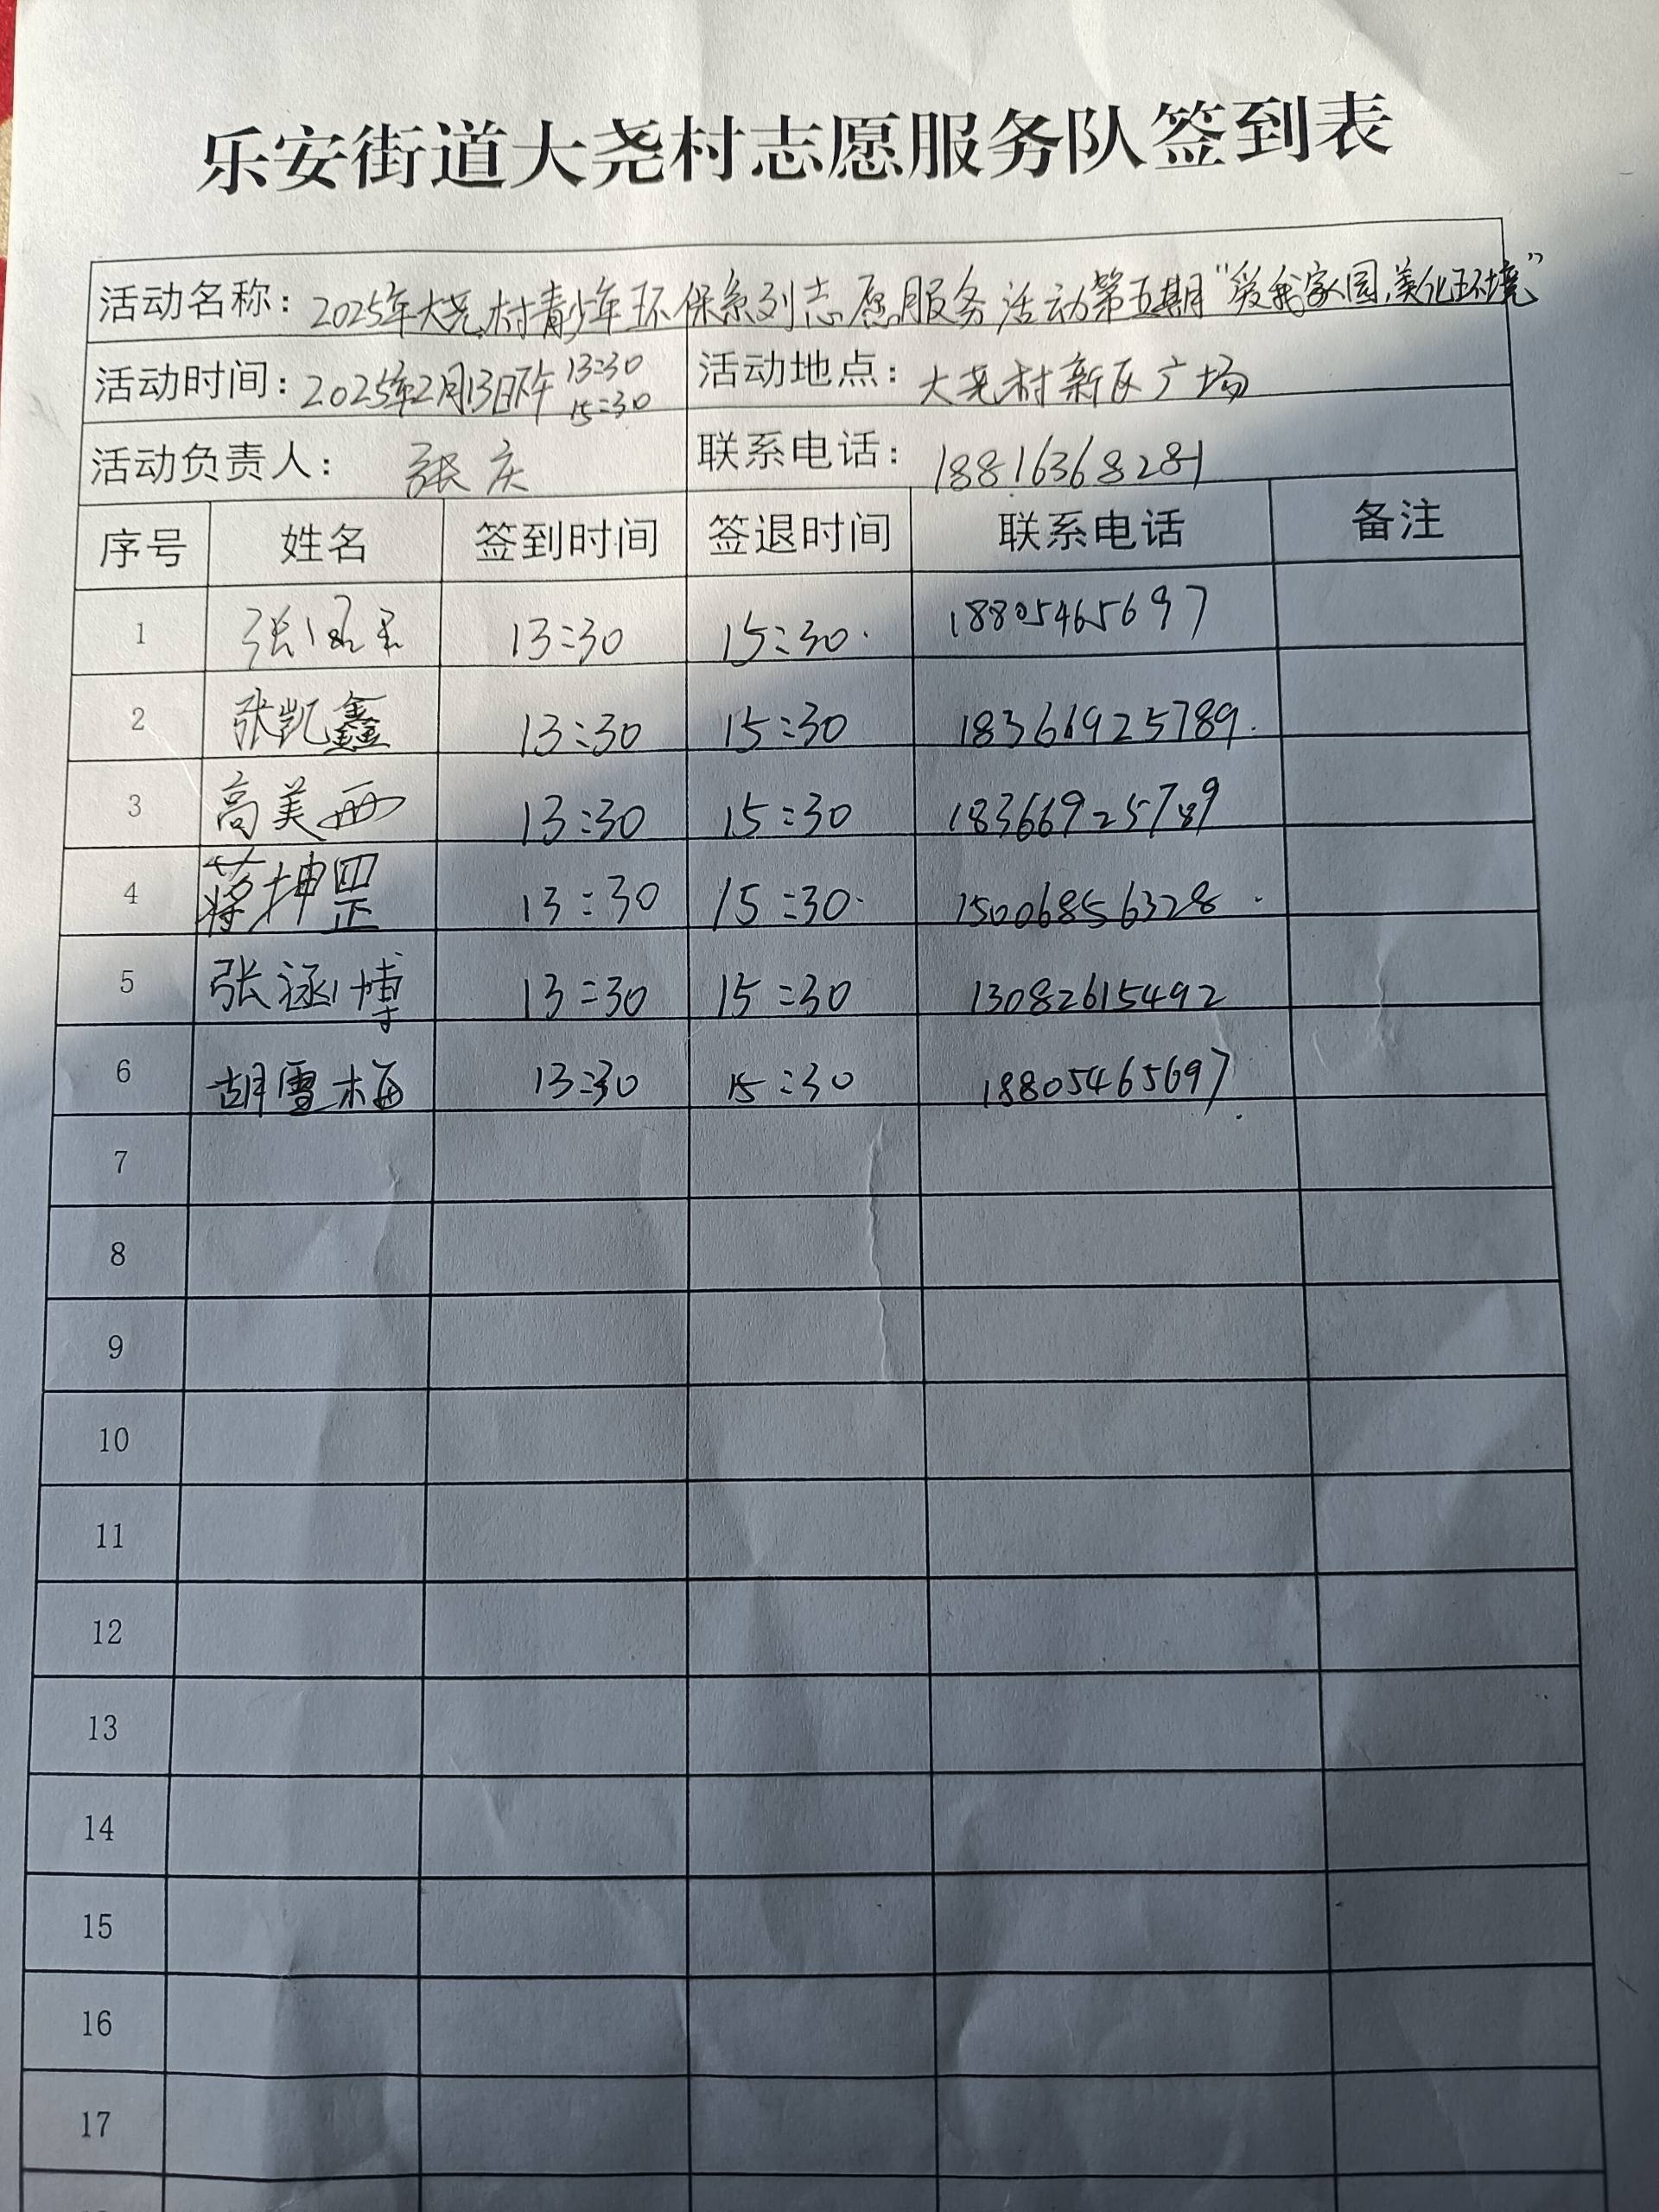 乐安街道大尧村志愿服务队签到表
活动名称：2025年大尧村青少年环保系列志愿服务活动第五期“爱我家园，美化环境”
活动时间：2025年2月13日下午 13:30 15:30 活动地点：大尧村新区广场
活动负责人：张庆 联系电话：18816368281
序号 姓名 签到时间 签退时间 联系电话 备注
1 张 13:30 15:30 18805465697
2 张凯鑫 13:30 15:30 18366925789
3 高美西 13:30 15:30 18366925789
4 蒋坤罡 13:30 15:30 15006856328
5 张涵博 13:30 15:30 13082615492
6 胡雪梅 13:30 15:30 18805465697
7
8
9
10
11
12
13
14
15
16
17